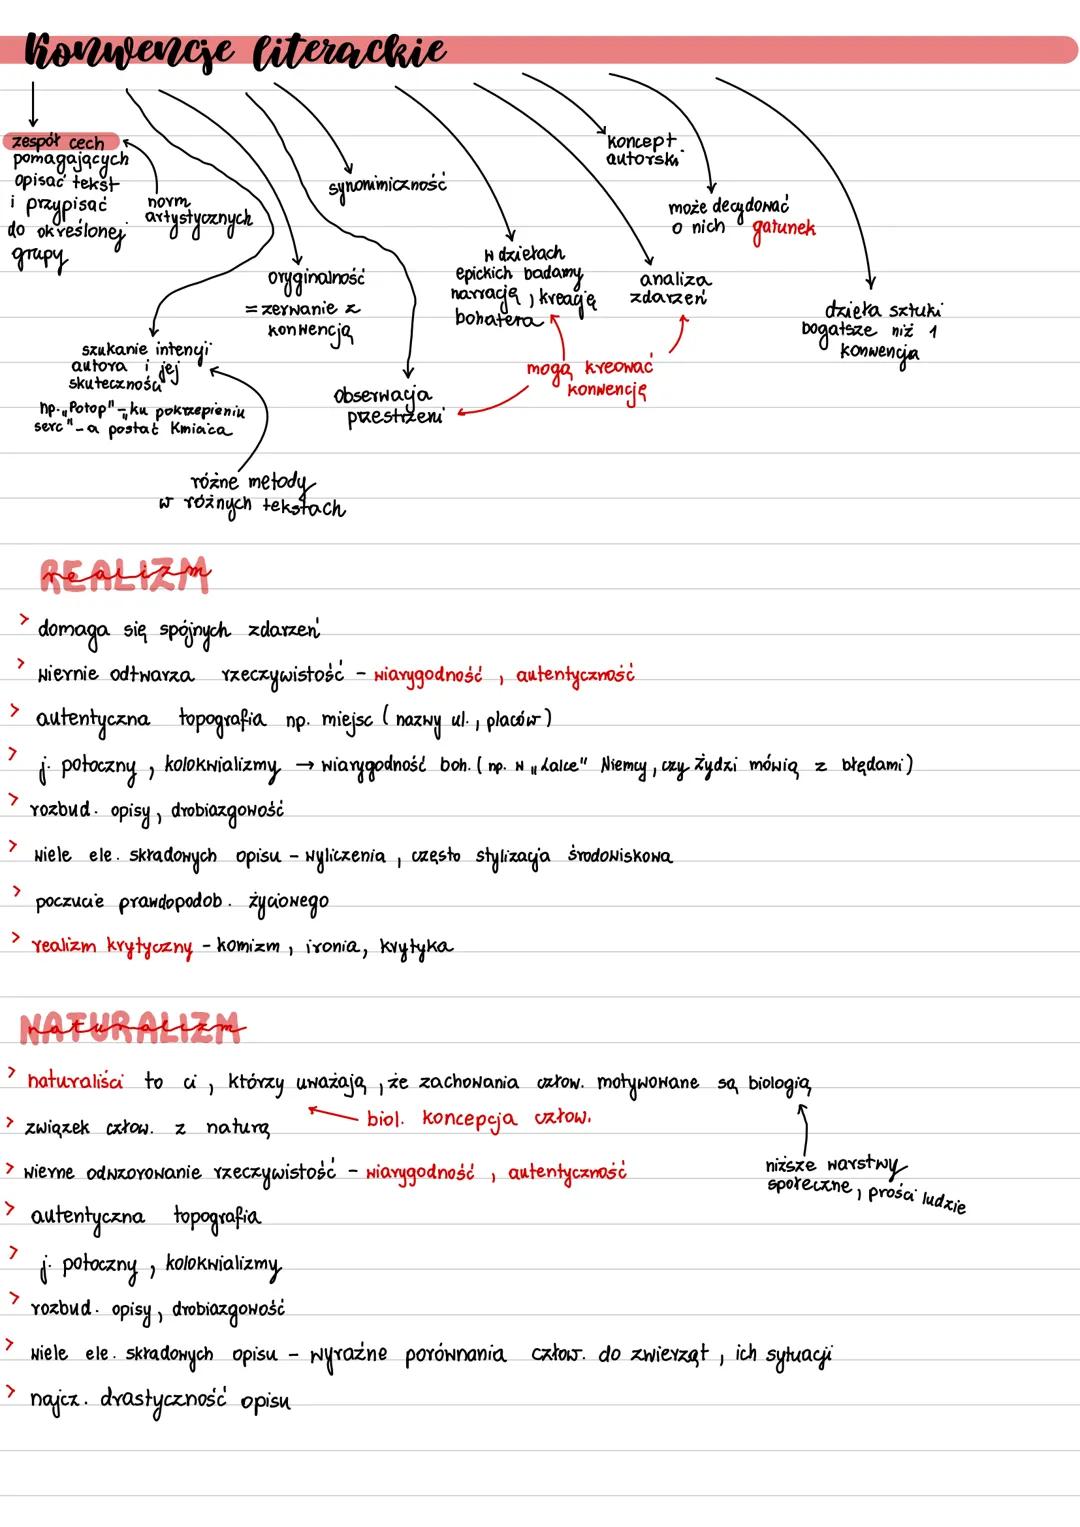 Konwencje literackie
zespół cech
pomagających
opisać tekst
i przypisać
do określonej
grupy
norm
artystycznych
szukanie intencji
autora i jej
skuteczności
np. „Potop" - „ku pokrzepieniu
serc" - a postać Kmicica
różne metody
w różnych tekstach
oryginalność
= zerwanie z
konwencją
synonimiczność
obserwacja
przestrzeni
w dziełach
epickich badamy
narrację, kreację
bohatera
mogą kreować
konwencję
koncept
autorski
analiza
zdarzeń
może decydować
o nich gatunek
dzieła sztuki
bogatsze niż 1
konwencja
REALIZM
realizm
> domaga się spójnych zdarzeń
> wiernie odtwarza rzeczywistość - wiarygodność, autentyczność
> autentyczna topografia np. miejsc (nazwy ul., placów)
> j. potoczny, kolokwializmy → wiarygodność boh. (np. w „Lalce" Niemcy, czy Żydzi mówią z błędami)
> rozbud. opisy, drobiazgowość
> wiele ele. składowych opisu - wyliczenia, często stylizacja środowiskowa
> poczucie prawdopodob. życiowego
> realizm krytyczny - komizm, ironia, krytyka
NATURALIZM
naturalizm
> naturaliści to ci, którzy uważają, że zachowania człow. motywowane są biologią
biol. koncepcja człow.
> związek człow. z naturą
niższe warstwy
społeczne, prości ludzie
> wierne odwzorowanie rzeczywistość - wiarygodność, autentyczność
> autentyczna topografia
> j. potoczny, kolokwializmy
> rozbud. opisy, drobiazgowość
> wiele ele. składowych opisu - wyraźne porównania człow. do zwierząt, ich sytuacji
> najcz. drastyczność opisu